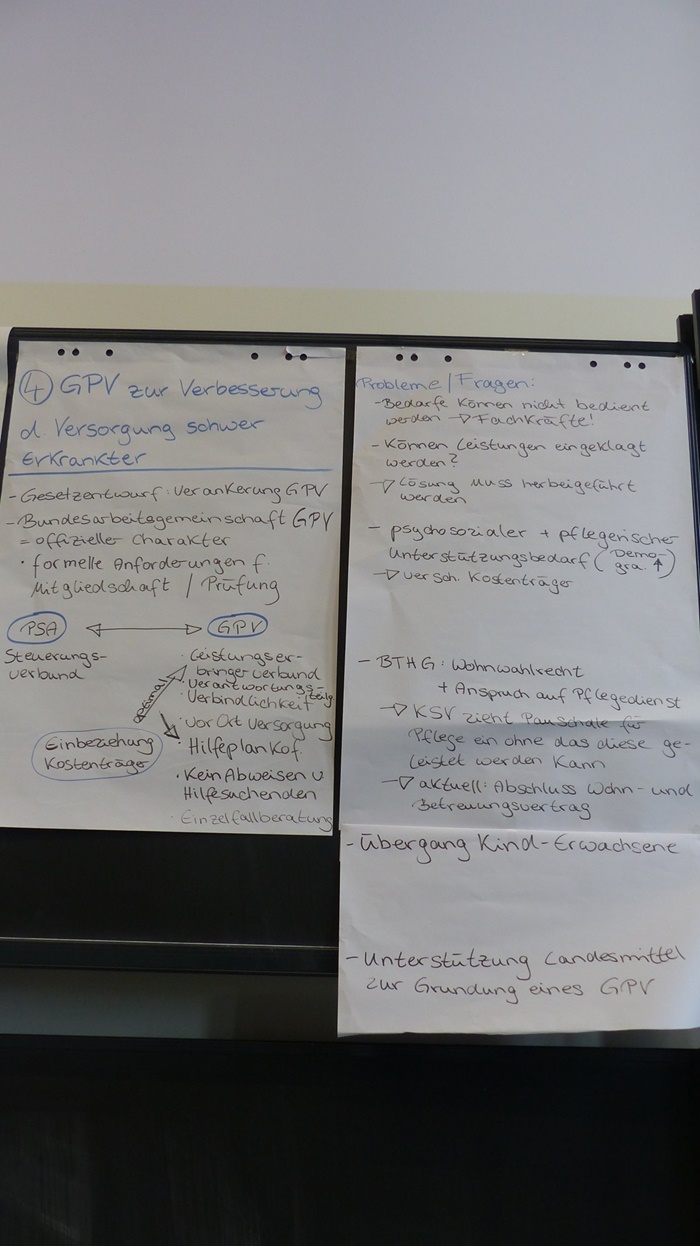 4 GPV zur Verbesserung
d. Versorgung schwer
Erkrankter
- Gesetzentwurf: Verankerung GPV
- Bundesarbeitsgemeinschaft GPV
= offizieller Charakter
• formelle Anforderungen f.
Mitgliedschaft / Prüfung
PSA ↔ GPV
Steuerungs-
verbund
• Leistungser-
bringerverbund
• Verantwortungs-
• Verbindlichkeit
• Vor Ort Versorgung
optimal
Einbeziehung
Kostenträger
• Hilfeplankof.
• Kein Abweisen v
Hilfesuchenden
• Einzelfallberatung
Probleme/Fragen:
- Bedarfe können nicht bedient
werden → Fachkräfte!
- Können Leistungen eingeklagt
werden?
→ Lösung muss herbeigeführt
werden
- psychosozialer + pflegerischer
Unterstützungsbedarf (Demo-
gra. ↑)
→ versch. Kostenträger
- BTHG: Wohnwahlrecht
+ Anspruch auf Pflegedienst
→ KSV zieht Pauschale für
Pflege ein ohne das diese ge-
leistet werden kann
→ aktuell: Abschluss Wohn- und
Betreuungsvertrag
- Übergang Kind-Erwachsene
- Unterstützung Landesmittel
zur Gründung eines GPV